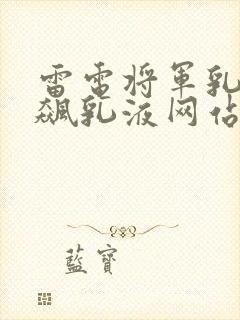 雷電将軍乳
飆乳液网佔
藍寶